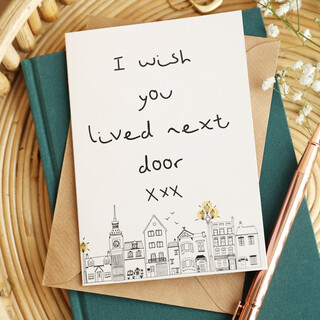 I wish
you
lived next
door
xxx